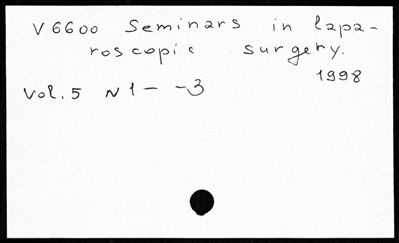 V 6600 Seminars in lapa-
roscopic surgery.
1998
Vol. 5 N 1 - -3